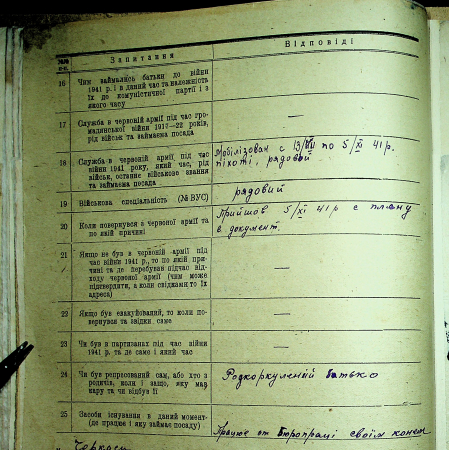 №№ п-п.
Запитання
Відповіді
16
Чим займались батьки до війни
1941 р. і в даний час та належність
їх до комуністичної партії і з
якого часу
—
17
Служба в червоній армії під час гро-
мадянської війни 1917—22 років,
рід військ та займаєма посада
—
18
Служба в червоній армії під час
війни 1941 року, який час, рід
військ, останнє військове звання
та займаєма посада
Мобілізован с 13/VII по 5/XI 41 р.
піхоті, рядовой
19
Військова спеціальність (№ ВУС)
рядовий
20
Коли повернувся з червоної армії та
по якій причині
Прийшов 5/XI 41 р с плену
є документ.
21
Якщо не був в червоній армії під
час війни 1941 р., то по якій при-
чині та де перебував підчас від-
ходу червоної армії (чим може
підтвердити, а коли свідками то їх
адреса)
—
22
Якщо був евакуйований, то коли по-
вернувся та звідки саме
—
23
Чи був в партизанах під час війни
1941 р. та де саме і який час
—
24
Чи був репресований сам, або хто з
родичів, коли і защо, яку мав
кару та чи відбув її
батько
25
Засоби існування в даний момент-
(де працює і яку займає посаду)
Працює от Бюропраці своїм конем